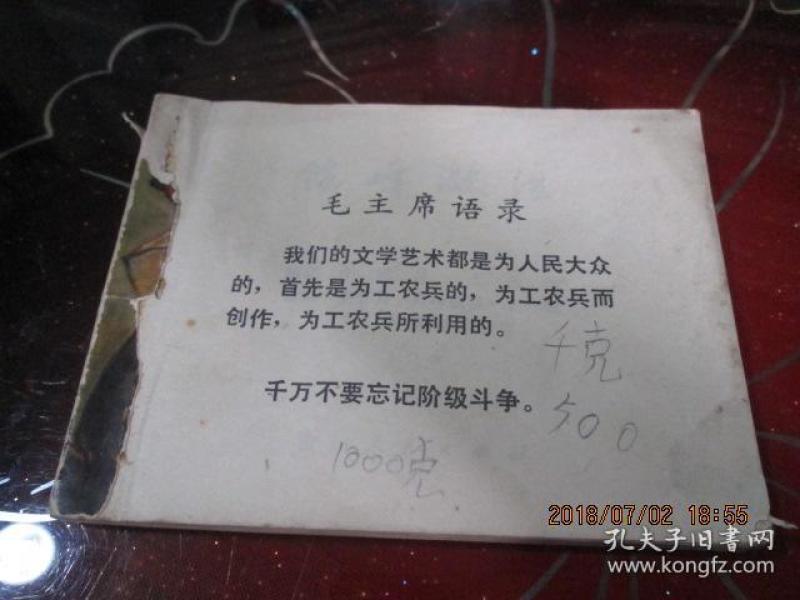 毛主席语录
我们的文学艺术都是为人民大众
的，首先是为工农兵的，为工农兵而
创作，为工农兵所利用的。
千克
千万不要忘记阶级斗争。
500
1000克
2018/07/02 18:55
孔夫子旧书网
www.kongfz.com